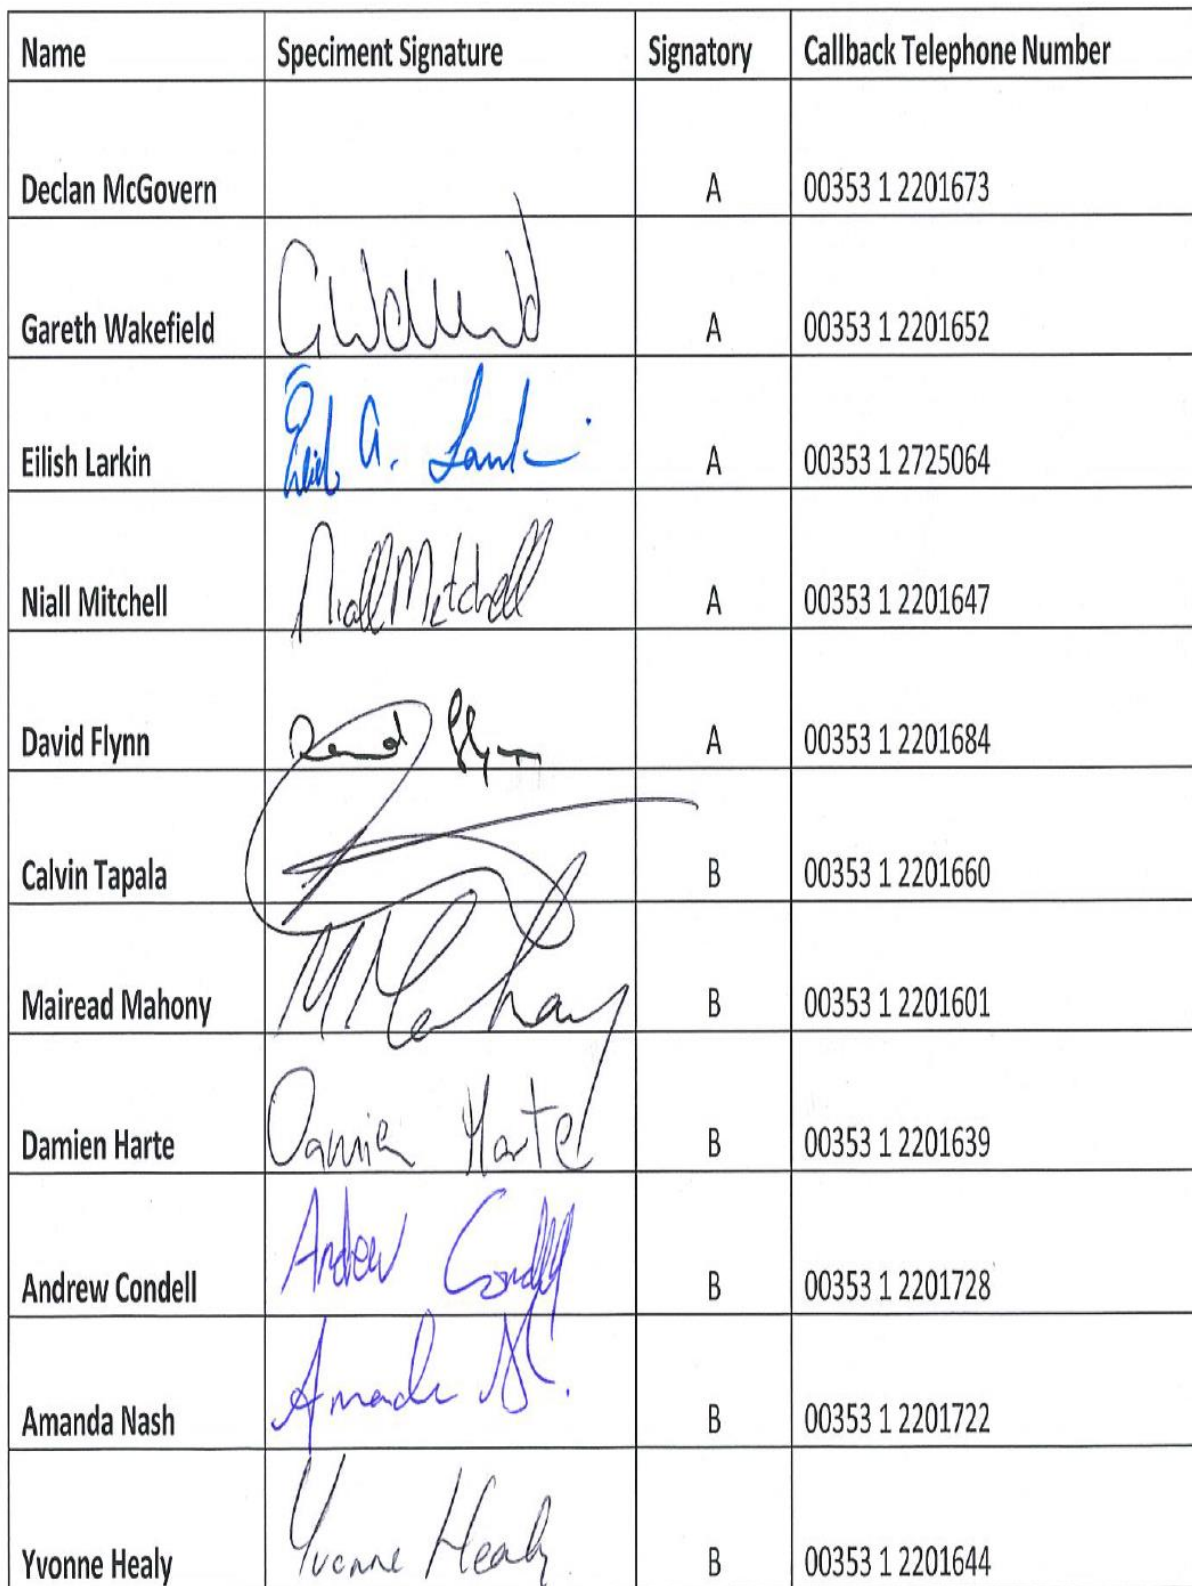 Name Speciment Signature Signatory Callback Telephone Number
Declan McGovern A 00353 1 2201673
Gareth Wakefield A 00353 1 2201652
Eilish Larkin Eilish A. Larkin A 00353 1 2725064
Niall Mitchell Niall Mitchell A 00353 1 2201647
David Flynn David Flynn A 00353 1 2201684
Calvin Tapala B 00353 1 2201660
Mairead Mahony M Mahony B 00353 1 2201601
Damien Harte Damien Harte B 00353 1 2201639
Andrew Condell Andrew Condell B 00353 1 2201728
Amanda Nash Amanda B 00353 1 2201722
Yvonne Healy Yvonne Healy B 00353 1 2201644